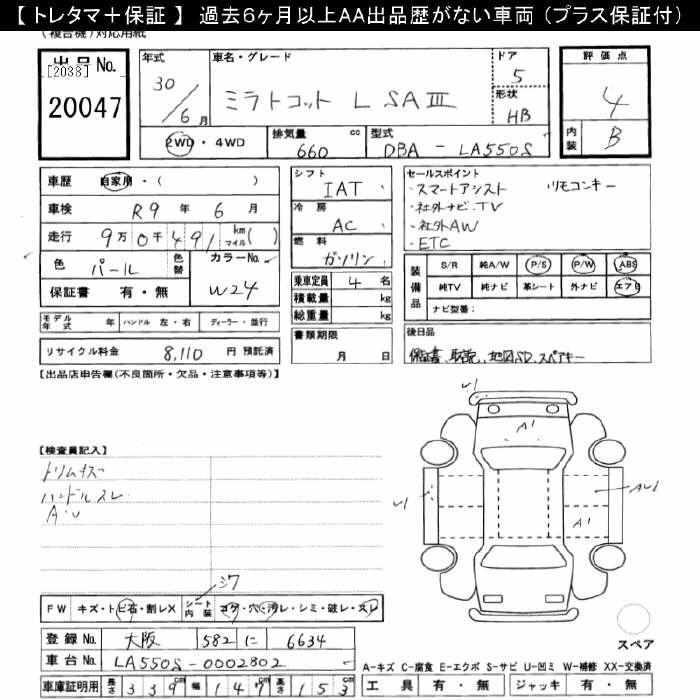 【 トレタマ＋保証 】 過去６ヶ月以上AA出品歴がない車両（プラス保証付）
（複合機）対応用紙
出品No.
[2038]
20047
年式 30／6月
車名・グレード ミラトコット L SAⅢ
ドア 5
形状 HB
評価点 4
内装 B
2WD・4WD
排気量 660 cc
型式 DBA - LA550S
車歴 自家用・( )
車検 R9年 6月
走行 9万0千491 km マイル( )
色 パール 色替
カラーNo. W24
保証書 有・無
モデル年式 年 ハンドル 左・右 ディーラー・並行
リサイクル料金 8,110 円 預託済
シフト IAT
冷房 AC
燃料 ガソリン
乗車定員 4 名
積載量 kg
総重量 kg
書類期限 月 日
セールスポイント
・スマートアシスト リモコンキー
・社外ナビ、TV
・社外AW
・ETC
装備品 S/R 純A/W P/S P/W ABS
純TV 純ナビ 革シート 外ナビ エアB
ナビ型番：
後日品
保証書、取説、地図SD、スペアキー
【出品店申告欄(不良箇所・欠品・注意事項等)】
【検査員記入】
トリムキズ
ハンドルスレ
A・U
シワ
A1
A1
FW キズ・トビ石・割レX シート内装 コゲ・穴・汚レ・シミ・破レ・スレ
登録No. 大阪 582 に 6634
車台No. LA550S-0002802
車庫証明用 長さ 339cm 幅 147cm 高さ 153cm
スペア
A-キズ C-腐食 E-エクボ S-サビ U-凹ミ W-補修 XX-交換済
工具 有・無 ジャッキ 有・無